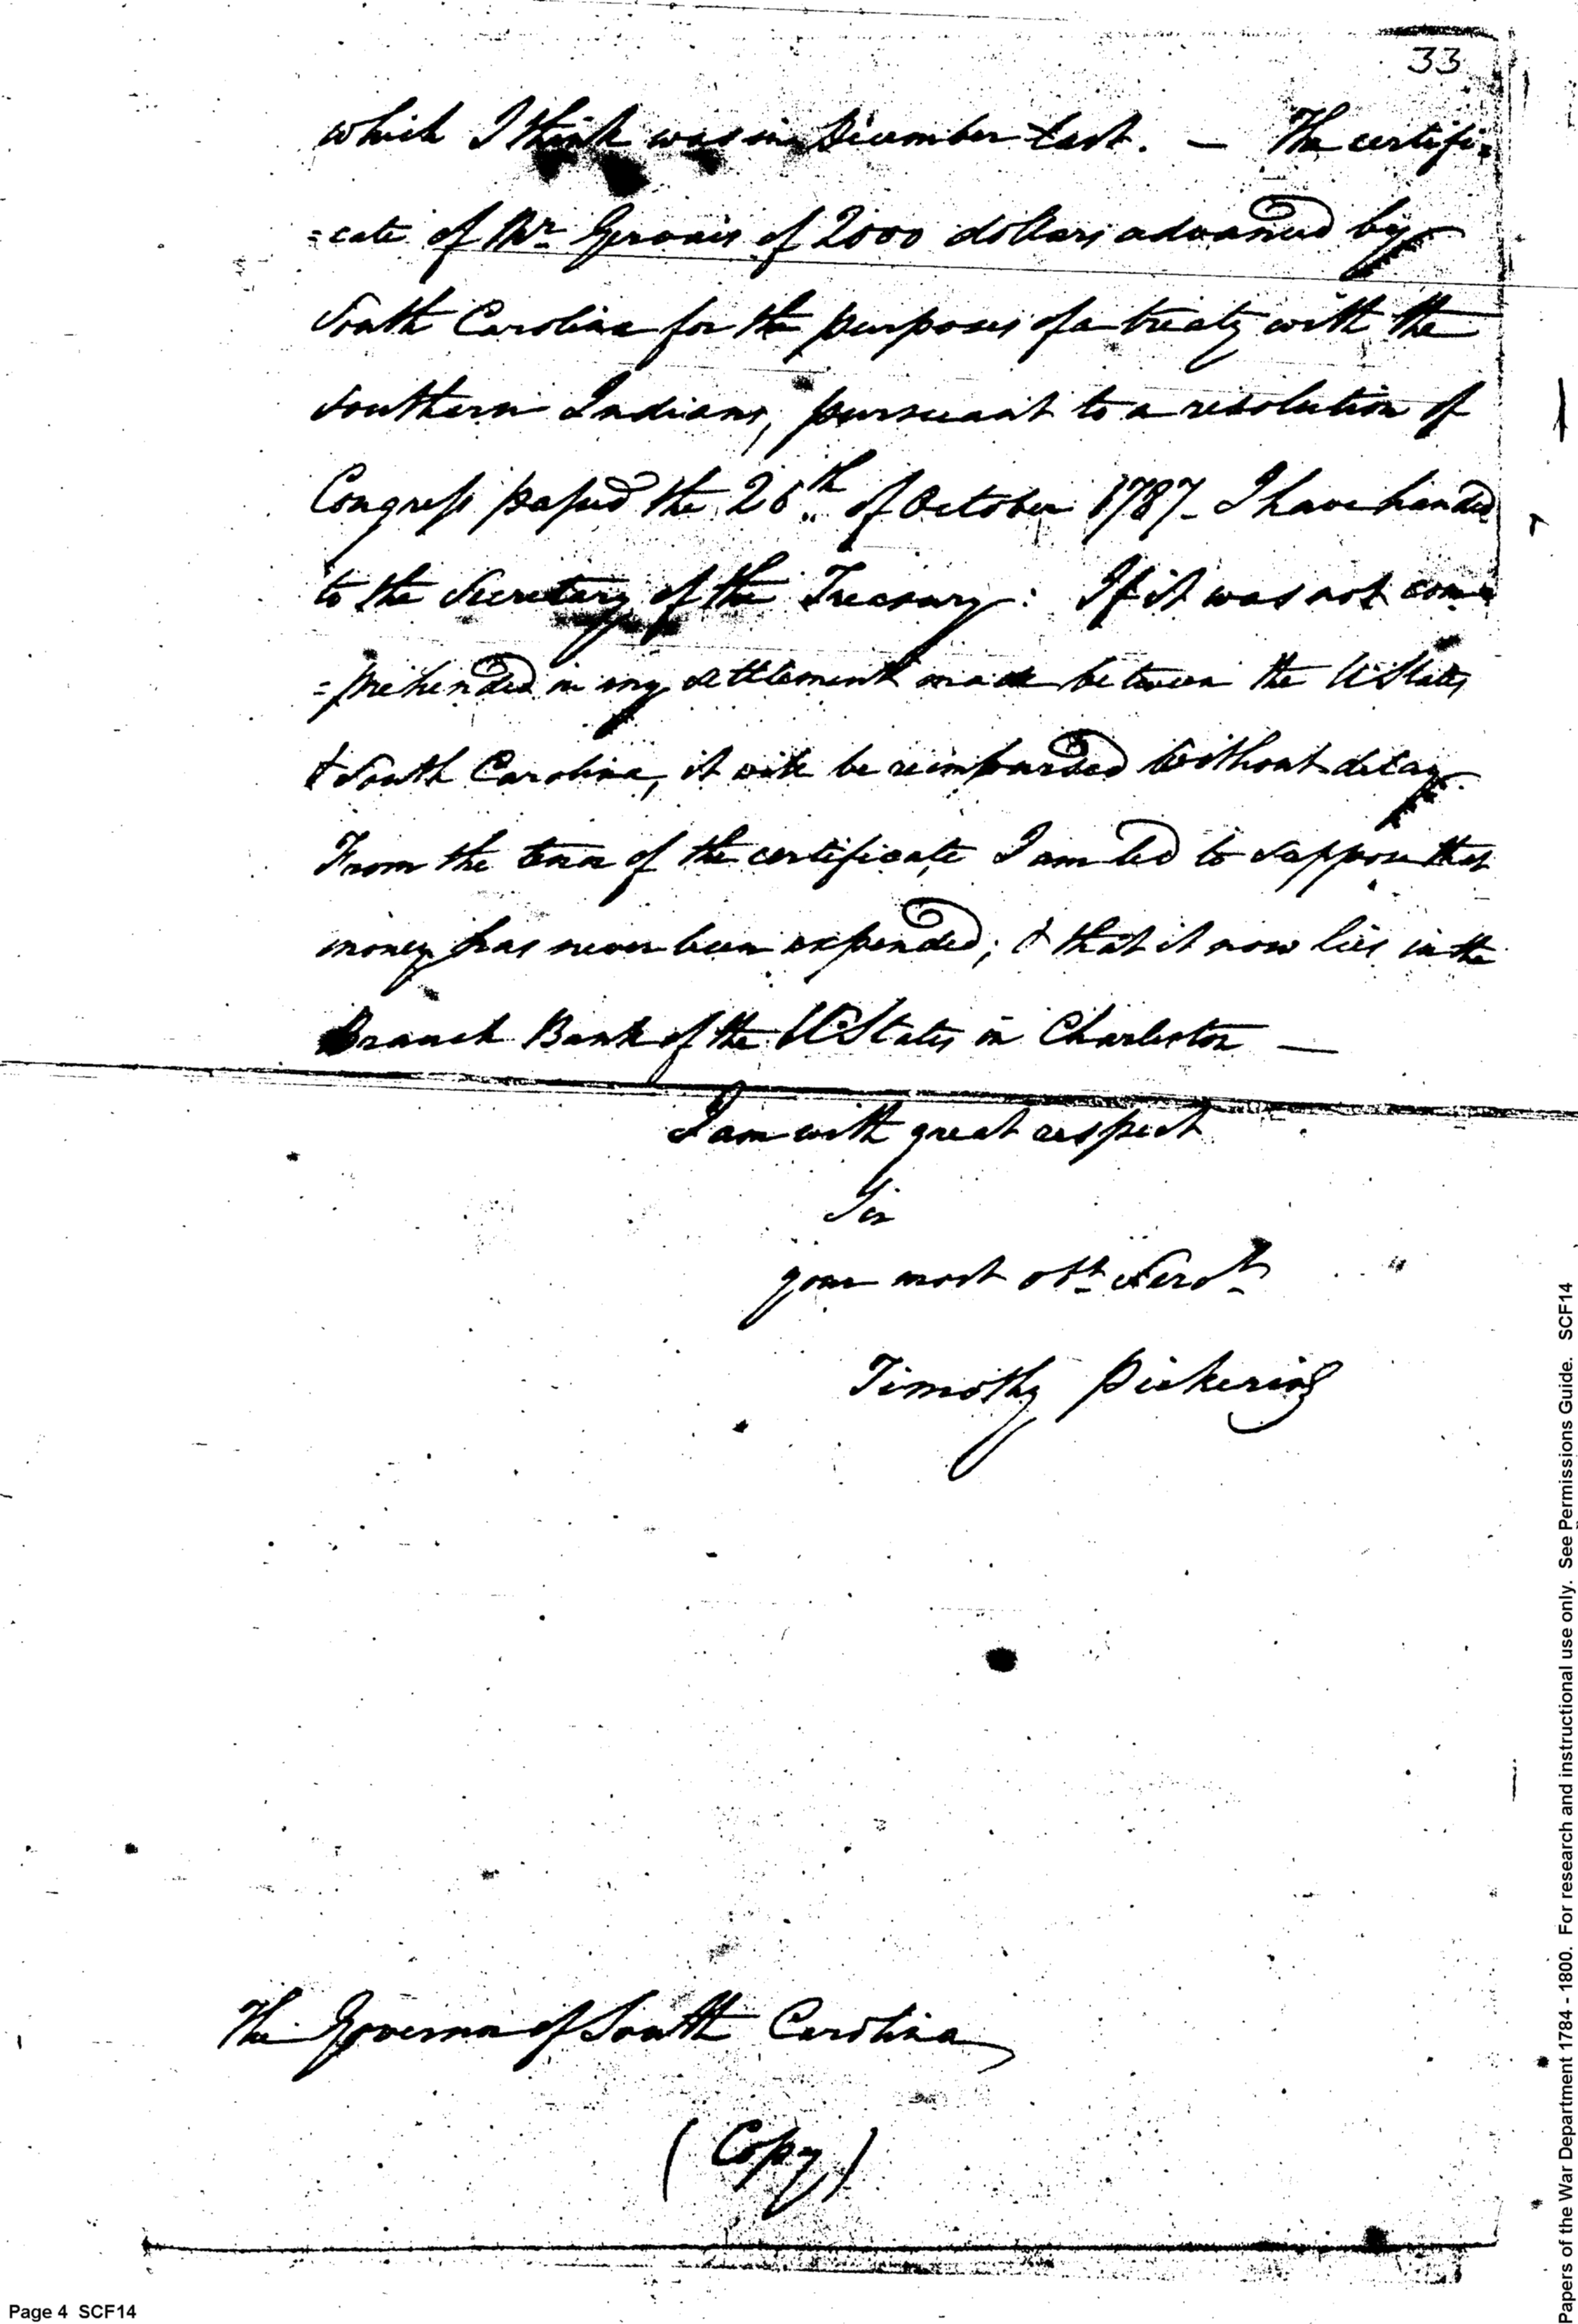 33
which I think was in December last. — The certifi-
=cate of Mr. Gervais of 2000 dollars advanced by
South Carolina for the purposes of a treaty with the
Southern Indians, pursuant to a resolution of
Congress passed the 26th of October 1787 - I have handed
to the Secretary of the Treasury: If it was not com
=prehended in any settlement made between the U States
& South Carolina, it will be reimbursed without delay.
From the tenor of the certificate I am led to suppose that
money has never been expended; & that it now lies in the
Branch Bank of the U States in Charleston —
I am with great respect
Sir
your most obt. Servt.
Timothy Pickering
The Governor of South Carolina
(Copy)
Page 4 SCF14
Papers of the War Department 1784 - 1800. For research and instructional use only. See Permissions Guide. SCF14